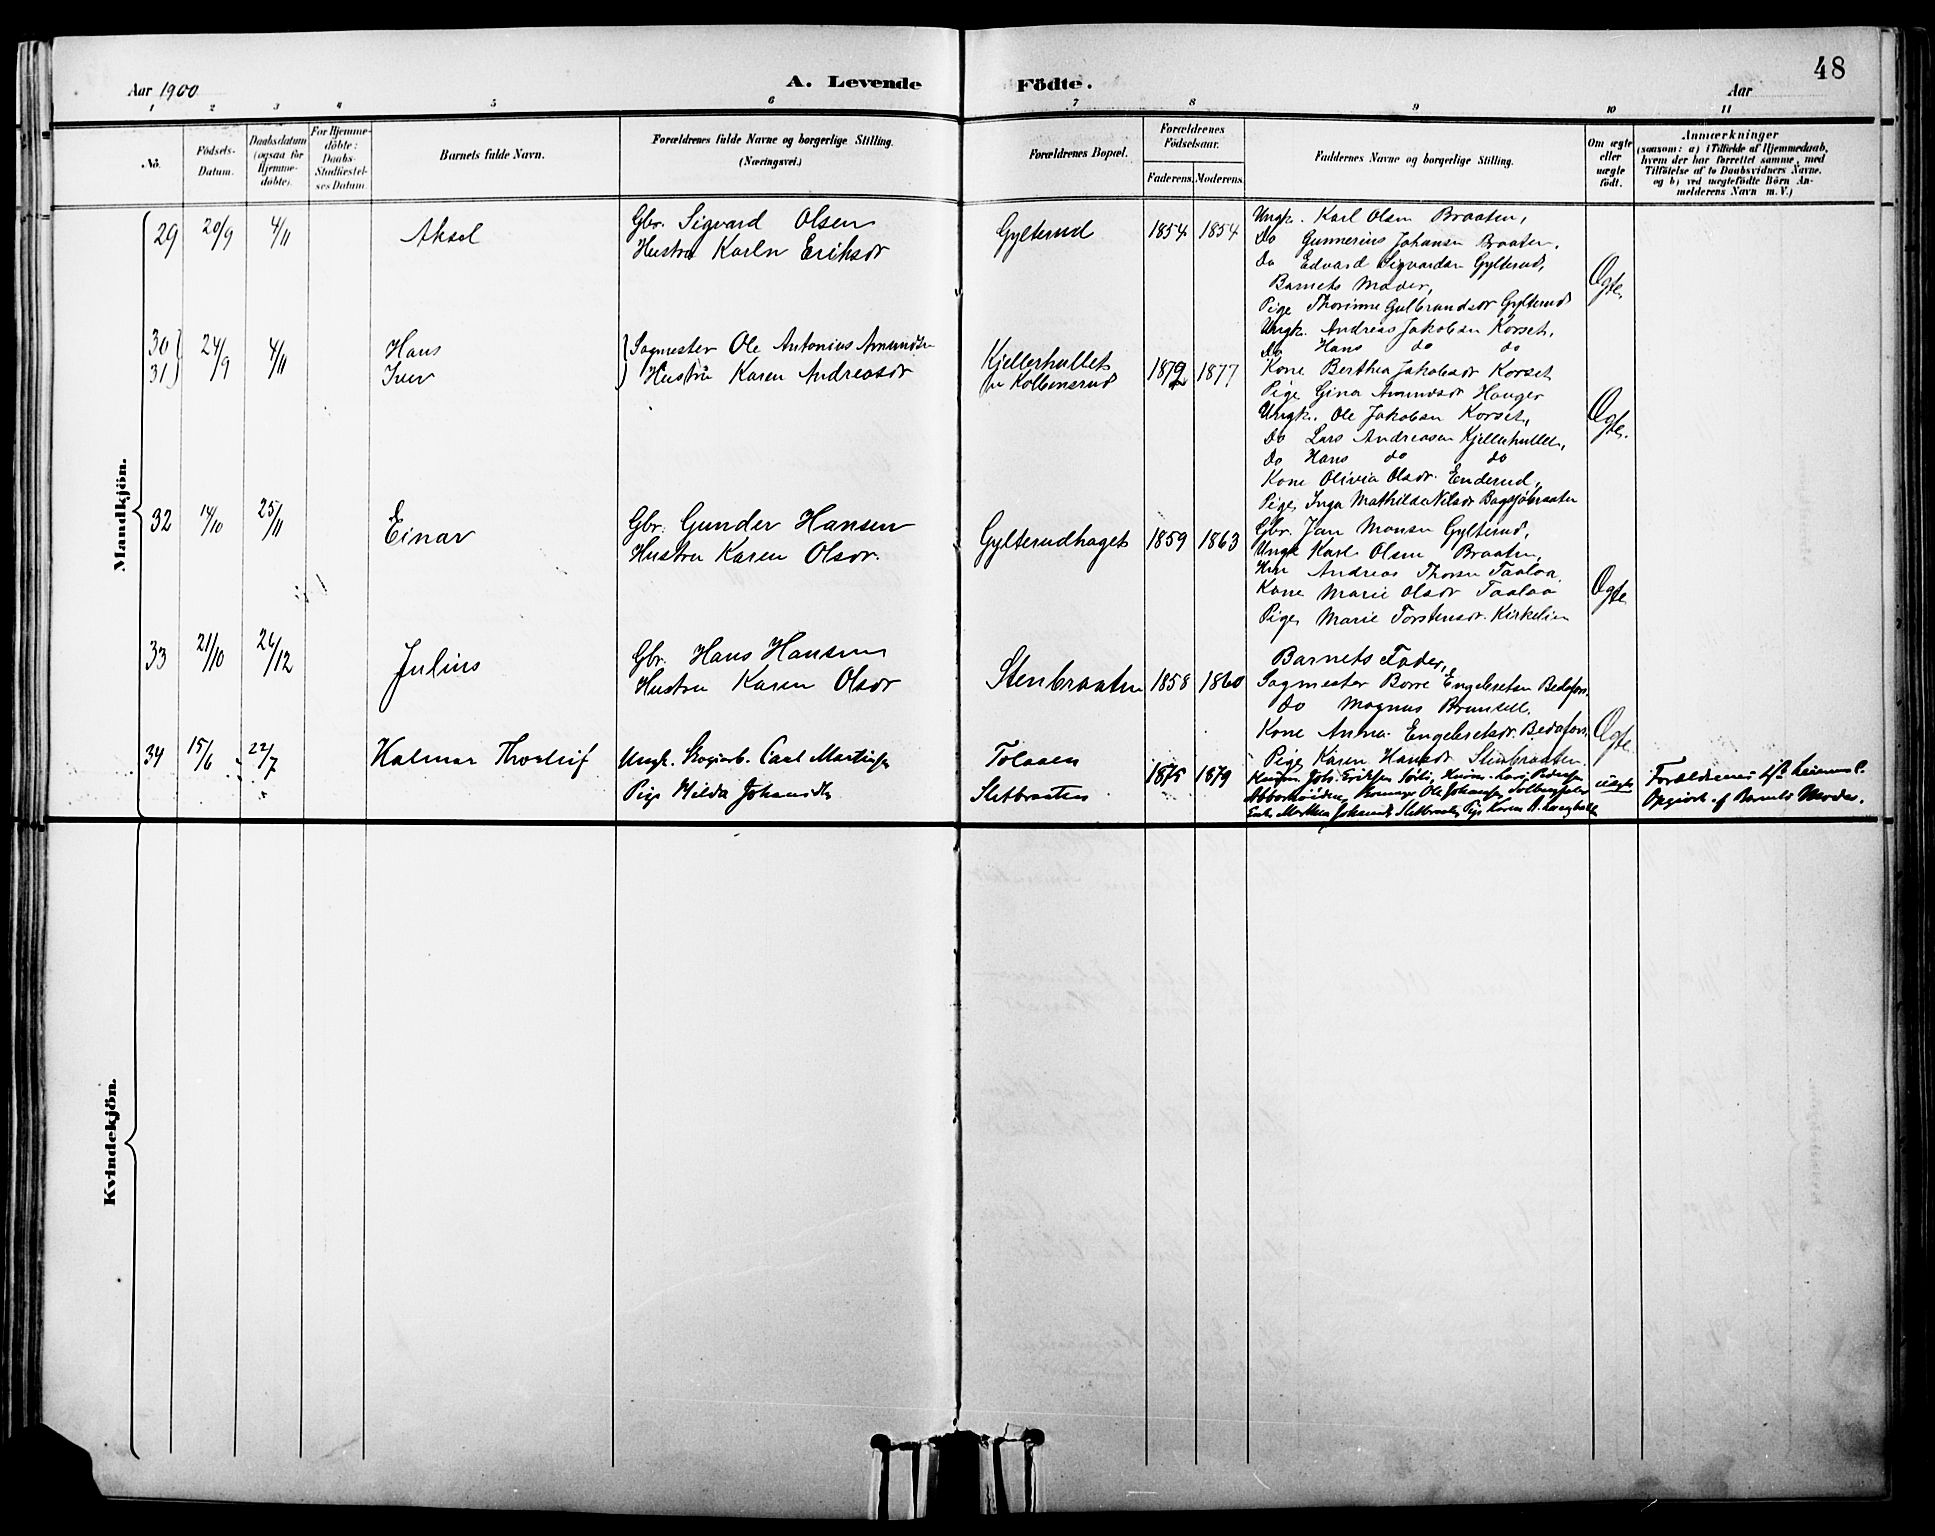 48
Aar 1900
A. Levende Födte.
Aar
1 2 3 4 5 6 7 8 9 10 11
No.
Födsels-
Datum.
Daabsdatum
(ogsaa for
Hjemme-
döbte).
For Hjemme-
döbte:
Daabs-
Stadfæstel-
ses Datum.
Barnets fulde Navn.
Forældrenes fulde Navne og borgerlige Stilling.
(Næringsvei.)
Forældrenes Bopæl.
Forældrenes
Födselsaar.
Faderens. Moderens.
Faddernes Navne og borgerlige Stilling.
Om ægte
eller
uægte
födt.
Anmærkninger
(saasom: a) i Tilfælde af Hjemmedaab,
hvem der har forrettet samme, med
Tilföielse af to Daabsvidners Navne.
og b) ved uægtefödte Börn An-
melderens Navn m. V.)
Mandkjön.
29 20/9 4/11 Aksel
Gbr. Sigvard Olsen
Hustru Karln Eriksdr
Gylterud 1854 1854
Ungk. Karl Olsen Braaten,
Do Gunnerius Johansen Braaten,
Do Edvard Sigvardsn Gylterud,
Barnets Moder,
Pige Thorinne Gulbrandsdr Gylterud
Ægte
30 24/9 4/11 Hans
31 Iver
Sagmester Ole Antonius Amundsen
Hustru Karen Andreasdr
Kjellerhullet
Kolbensrud
1872 1877
Ungk. Andreas Jakobsen Korset,
Do Hans do do
Kone Berthea Jakobsdr Korset
Pige Gina Amundsdr Hauger
Ungk. Ole Jakobsen Korset,
Do Lars Andreasen Kjellerhullet,
Do Hans do do
Kone Olivia Olsdr. Enderud,
Pige Inga Mathilda Nilsdr Bagsjöbraaten
Ægte.
32 14/10 25/11 Einar
Gbr. Gunder Hansen
Hustru Karen Olsdr.
Gylterudhaget 1859 1863
Gbr. Jan Monsen Gylterud,
Ungk Karl Olsen Braaten,
Andreas Thorsen Taalaa,
Kone Marie Olsdr Taalaa
Pige Marie Torstensdr. Kirkelien
Ægte
33 21/10 26/12 Julius
Gbr. Hans Hansen
Hustru Karen Olsdr
Stenbraaten 1858 1860
Barnets Fader,
Sagmester Borre Engebretsen Bedafors.
do Magnus Brunsell.
Kone Anna Engebretsdr. Bedafors,
Pige Karen Hansdr Stenbraaten.
Ægte
34 15/6 22/7 Halmar Thorleif
Ungk. Skogarb. Carl Martinsen
Pige Hilda Johansdtr
Tolaaen
Sletbraaten
1875 1879
Johs. Eriksen Lars Pedersen
Ole Johansen
Enke Marthea Johansdr Sletbraaten, Pige Karen A.
uægte
Forældrenes
Opgivet af Barnets Moder.
Kvindekjön.